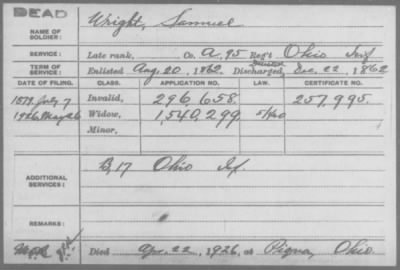 DEAD
NAME OF SOLDIER: Wright, Samuel
SERVICE: Late rank, Co. A, 95 Reg't Ohio Inf
TERM OF SERVICE: Enlisted Aug. 20, 1862 Discharged, Dec. 22, 1862
DATE OF FILING. CLASS. APPLICATION NO. LAW. CERTIFICATE NO.
1879 July 7 Invalid, 296,658. 257,995.
1926 May 26 Widow, 1,540,299
Minor,
ADDITIONAL SERVICES: B, 17 Ohio Inf.
REMARKS:
Died Apr. 22, 1926, at Piqua, Ohio